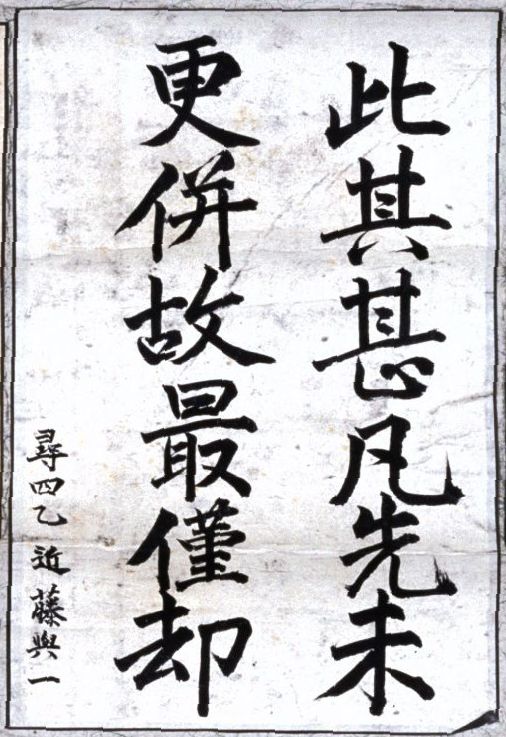 此其甚凡先未
更併故最僅却
尋四乙 近藤與一